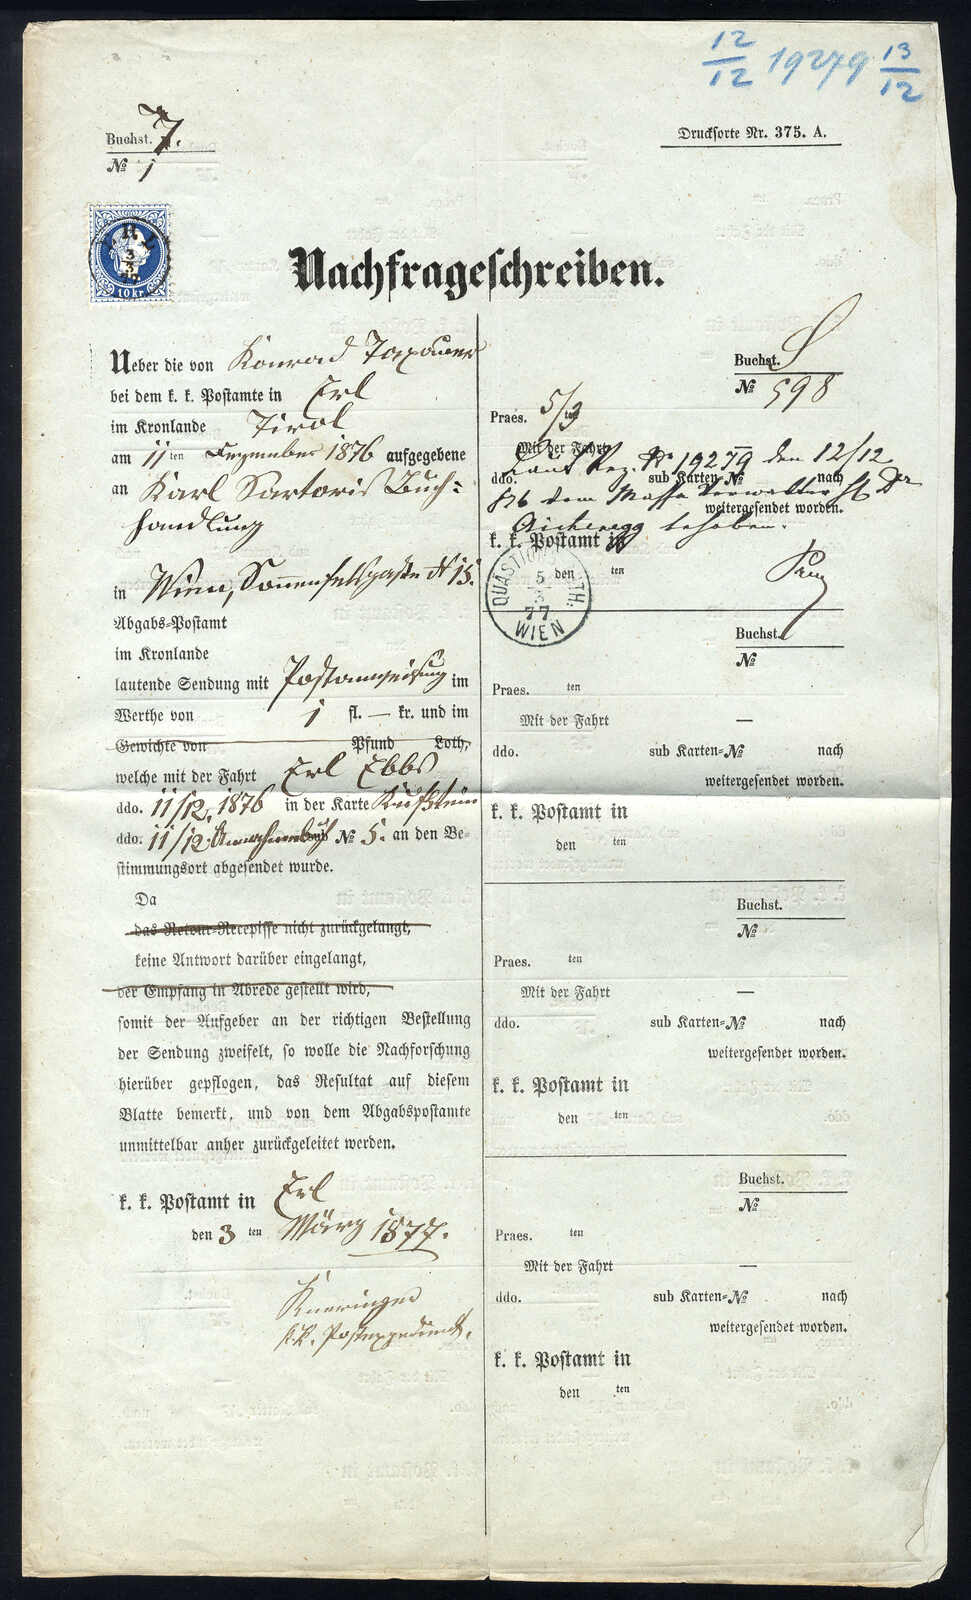 12/12 19279 13/12
Buchst. J.
№ 1
Drucksorte Nr. 375. A.
ERL
3
3
10 kr.
Nachfrageschreiben.
Ueber die von Konrad
bei dem k. k. Postamte in Erl
im Kronlande Tirol
am 11 ten Dezember 1876 aufgegebene
an Karl Sartoris Buch=
handlung
in Wien, Sonnenfelsgasse № 15.
Abgabs-Postamt
im Kronlande
lautende Sendung mit Postanweisung im
Werthe von 1 fl. — kr. und im
Gewichte von Pfund Loth,
welche mit der Fahrt Erl Ebbs
ddo. 11/12. 1876 in der Karte Kufstein
ddo. 11/12. № 5. an den Be=
stimmungsort abgesendet wurde.
Da
das Retour-Recepisse nicht zurückgelangt,
keine Antwort darüber eingelangt,
der Empfang in Abrede gestellt wird,
somit der Aufgeber an der richtigen Bestellung
der Sendung zweifelt, so wolle die Nachforschung
hierüber gepflogen, das Resultat auf diesem
Blatte bemerkt, und von dem Abgabspostamte
unmittelbar anher zurückgeleitet werden.
k. k. Postamt in Erl
den 3 ten März 1877.
k. k. Postexpedient.
Buchst. S
№ 598
Praes. 5/3 ten
Mit der Fahrt
Laut Reg. № 19279 den 12/12
ddo. sub Karten=№ nach
876 dem Massa Verwalter H Dr
weitergesendet worden.
behoben.
k. k. Postamt in
den ten
5
3
77
WIEN
Buchst.
№
Praes. ten
Mit der Fahrt —
ddo. sub Karten=№ nach
weitergesendet worden.
k. k. Postamt in
den ten
Buchst.
№
Praes. ten
Mit der Fahrt —
ddo. sub Karten=№ nach
weitergesendet worden.
k. k. Postamt in
den ten
Buchst.
№
Praes. ten
Mit der Fahrt —
ddo. sub Karten=№ nach
weitergesendet worden.
k. k. Postamt in
den ten